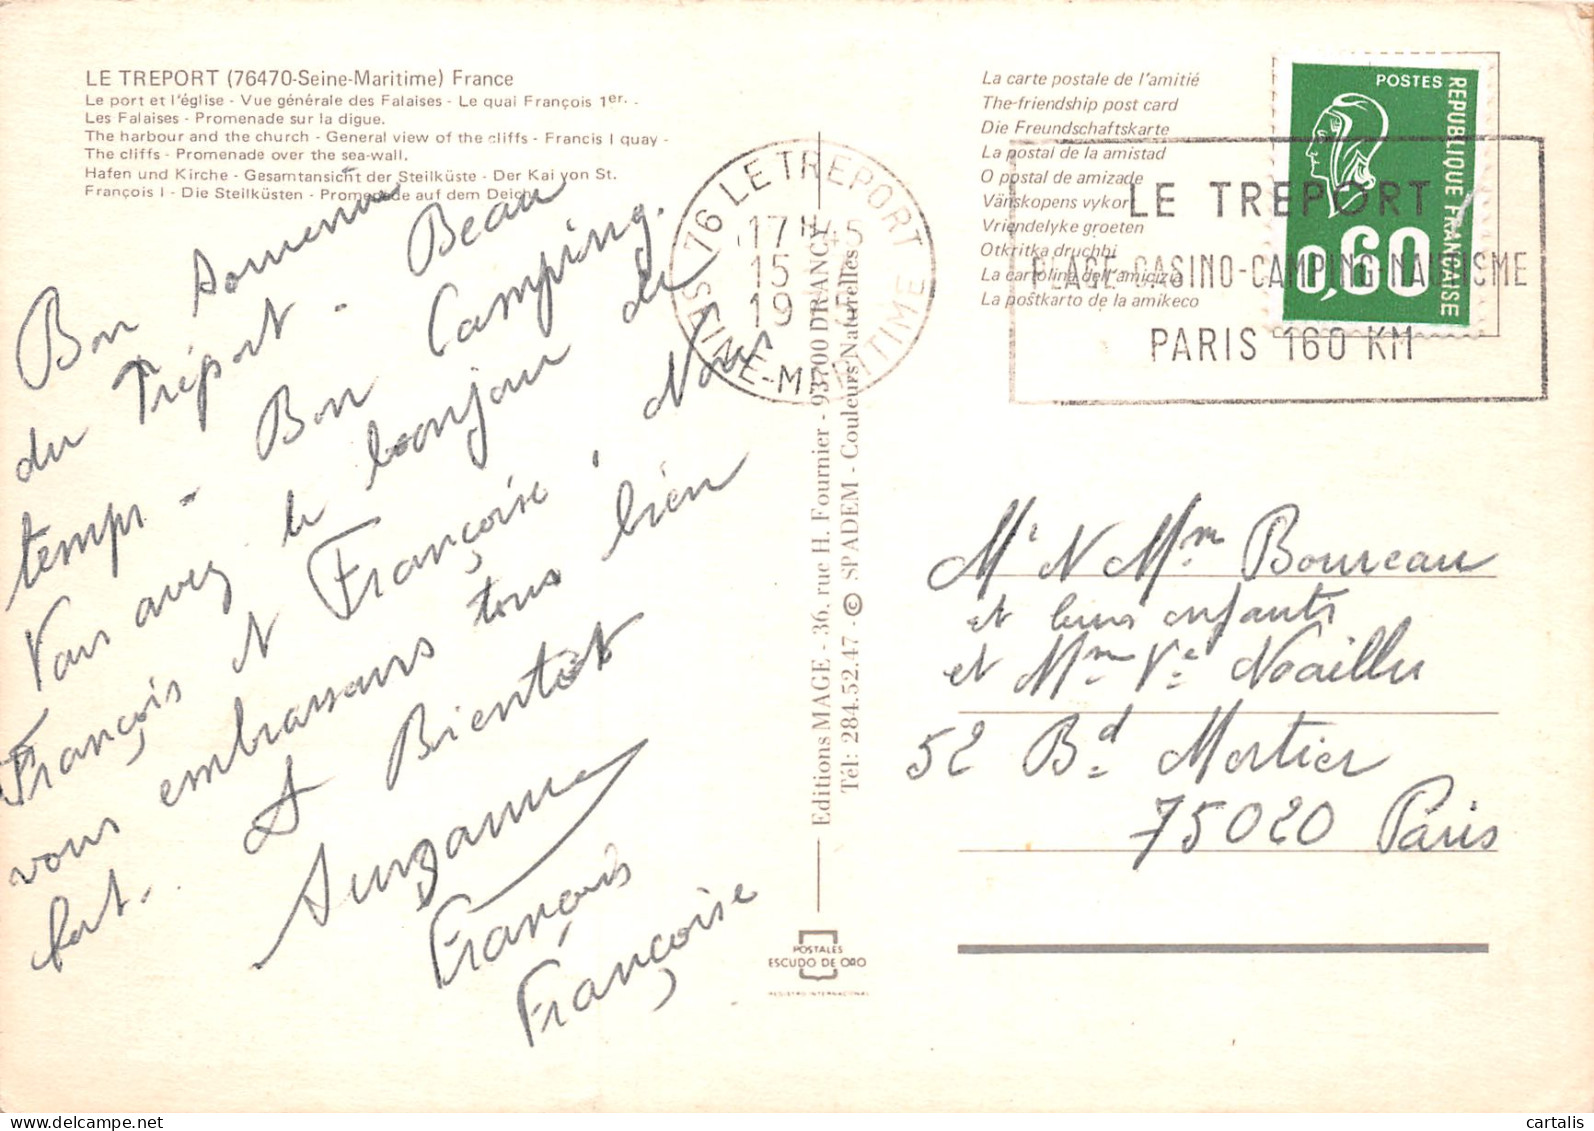 LE TREPORT (76470-Seine-Maritime) France
Le port et l'église - Vue générale des Falaises - Le quai François 1er. -
Les Falaises - Promenade sur la digue.
The harbour and the church - General view of the cliffs - Francis I quay -
The cliffs - Promenade over the sea-wall.
Hafen und Kirche - Gesamtansicht der Steilküste - Der Kai von St.
François I - Die Steilküsten - Promenade auf dem Deich
Bon souvenir
du Tréport - Beau
temps - Bon Camping.
Vous avez le bonjour de
François et Françoise. Nous
vous embrassons tous bien
fort. A Bientôt
Suzanne
François
Françoise
76 LE TREPORT
17H45
15
19
SEINE-MARITIME
Editions MAGE - 36, rue H. Fournier - 93700 DRANCY
Tél: 284.52.47 - © SPADEM - Couleurs Naturelles
POSTALES
ESCUDO DE ORO
REGISTRO INTERNACIONAL
La carte postale de l'amitié
The-friendship post card
Die Freundschaftskarte
La postal de la amistad
O postal de amizade
Vänskopens vykort
Vriendelyke groeten
Otkritka druchbi
La cartolina dell'amicizia
La poŝtkarto de la amikeco
POSTES
REPUBLIQUE FRANCAISE
0,60
LE TREPORT
PLAGE-CASINO-CAMPING-NAUTISME
PARIS 160 KM
Mr et Mme Boureau
et leurs enfants
et Mme Ve Noailles
52 Bd Mortier
75020 Paris
cartalis